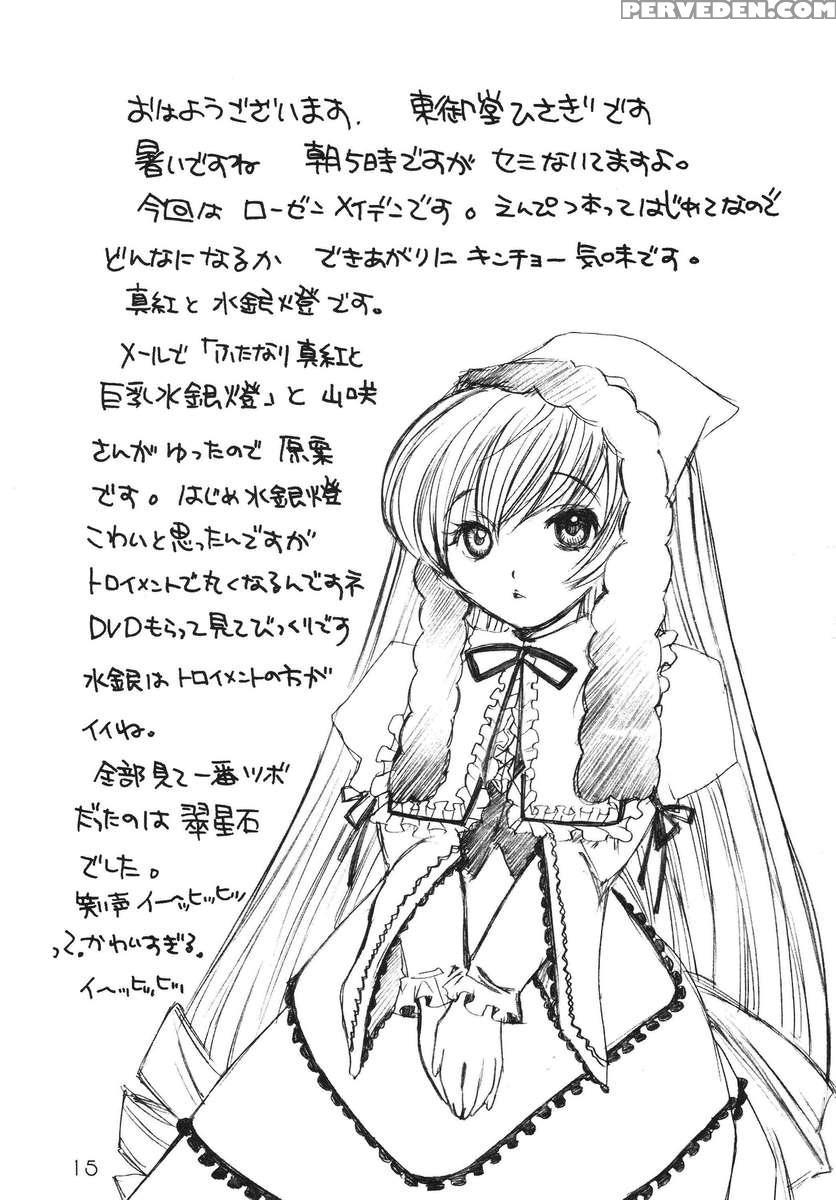 PERVEDEN.COM
おはようございます、 東御堂ひさぎです
暑いですね 朝5時ですが セミないてますよ。
今回は ローゼンメイデンです。えんぴつ本ってはじめてなので
どんなになるか できあがりに キンチョー気味です。
真紅と 水銀燈です。
メールで「ふたなり真紅と
巨乳水銀燈」と 山咲
さんが ゆったので 原案
です。はじめ水銀燈
こわいと思ったんですが
トロイメントで丸くなるんですネ
DVDもらって見てびっくりです
水銀はトロイメントの方が
イイね。
全部見て一番ツボ
だったのは 翠星石
でした。
笑い声 イーッヒッヒッヒッ
って。かわいすぎる。
イ〜ッヒッヒッ
15